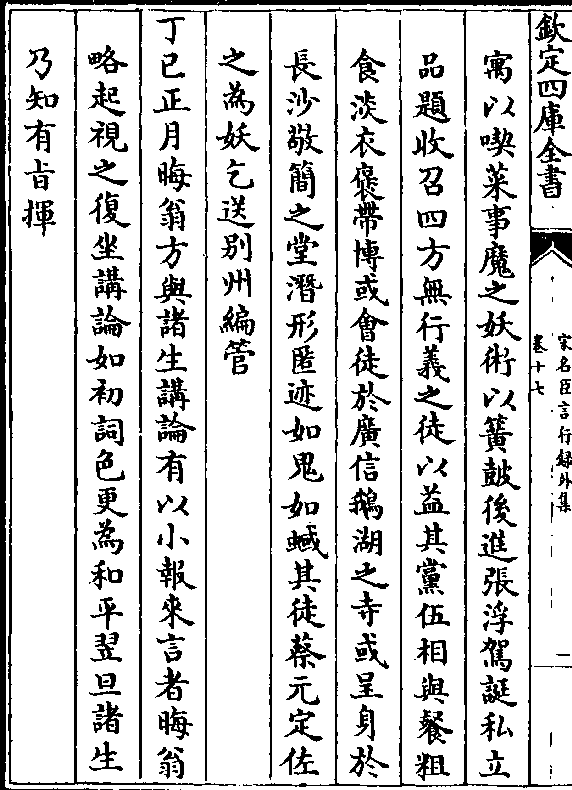 欽定四庫全書
宋名臣言行録外集
卷十七
二
寓以喫菜事魔之妖術以簧鼓後進張浮駕誕私立
品題收召四方無行義之徒以益其黨伍相與餐粗
食淡衣褒帶博或會徒於廣信鵝湖之寺或呈身於
長沙敬簡之堂潛形匿迹如鬼如蜮其徒蔡元定佐
之為妖乞送别州編管
丁巳正月晦翁方與諸生講論有以小報來言者晦翁
略起視之復坐講論如初詞色更為和平翌旦諸生
乃知有㫖揮